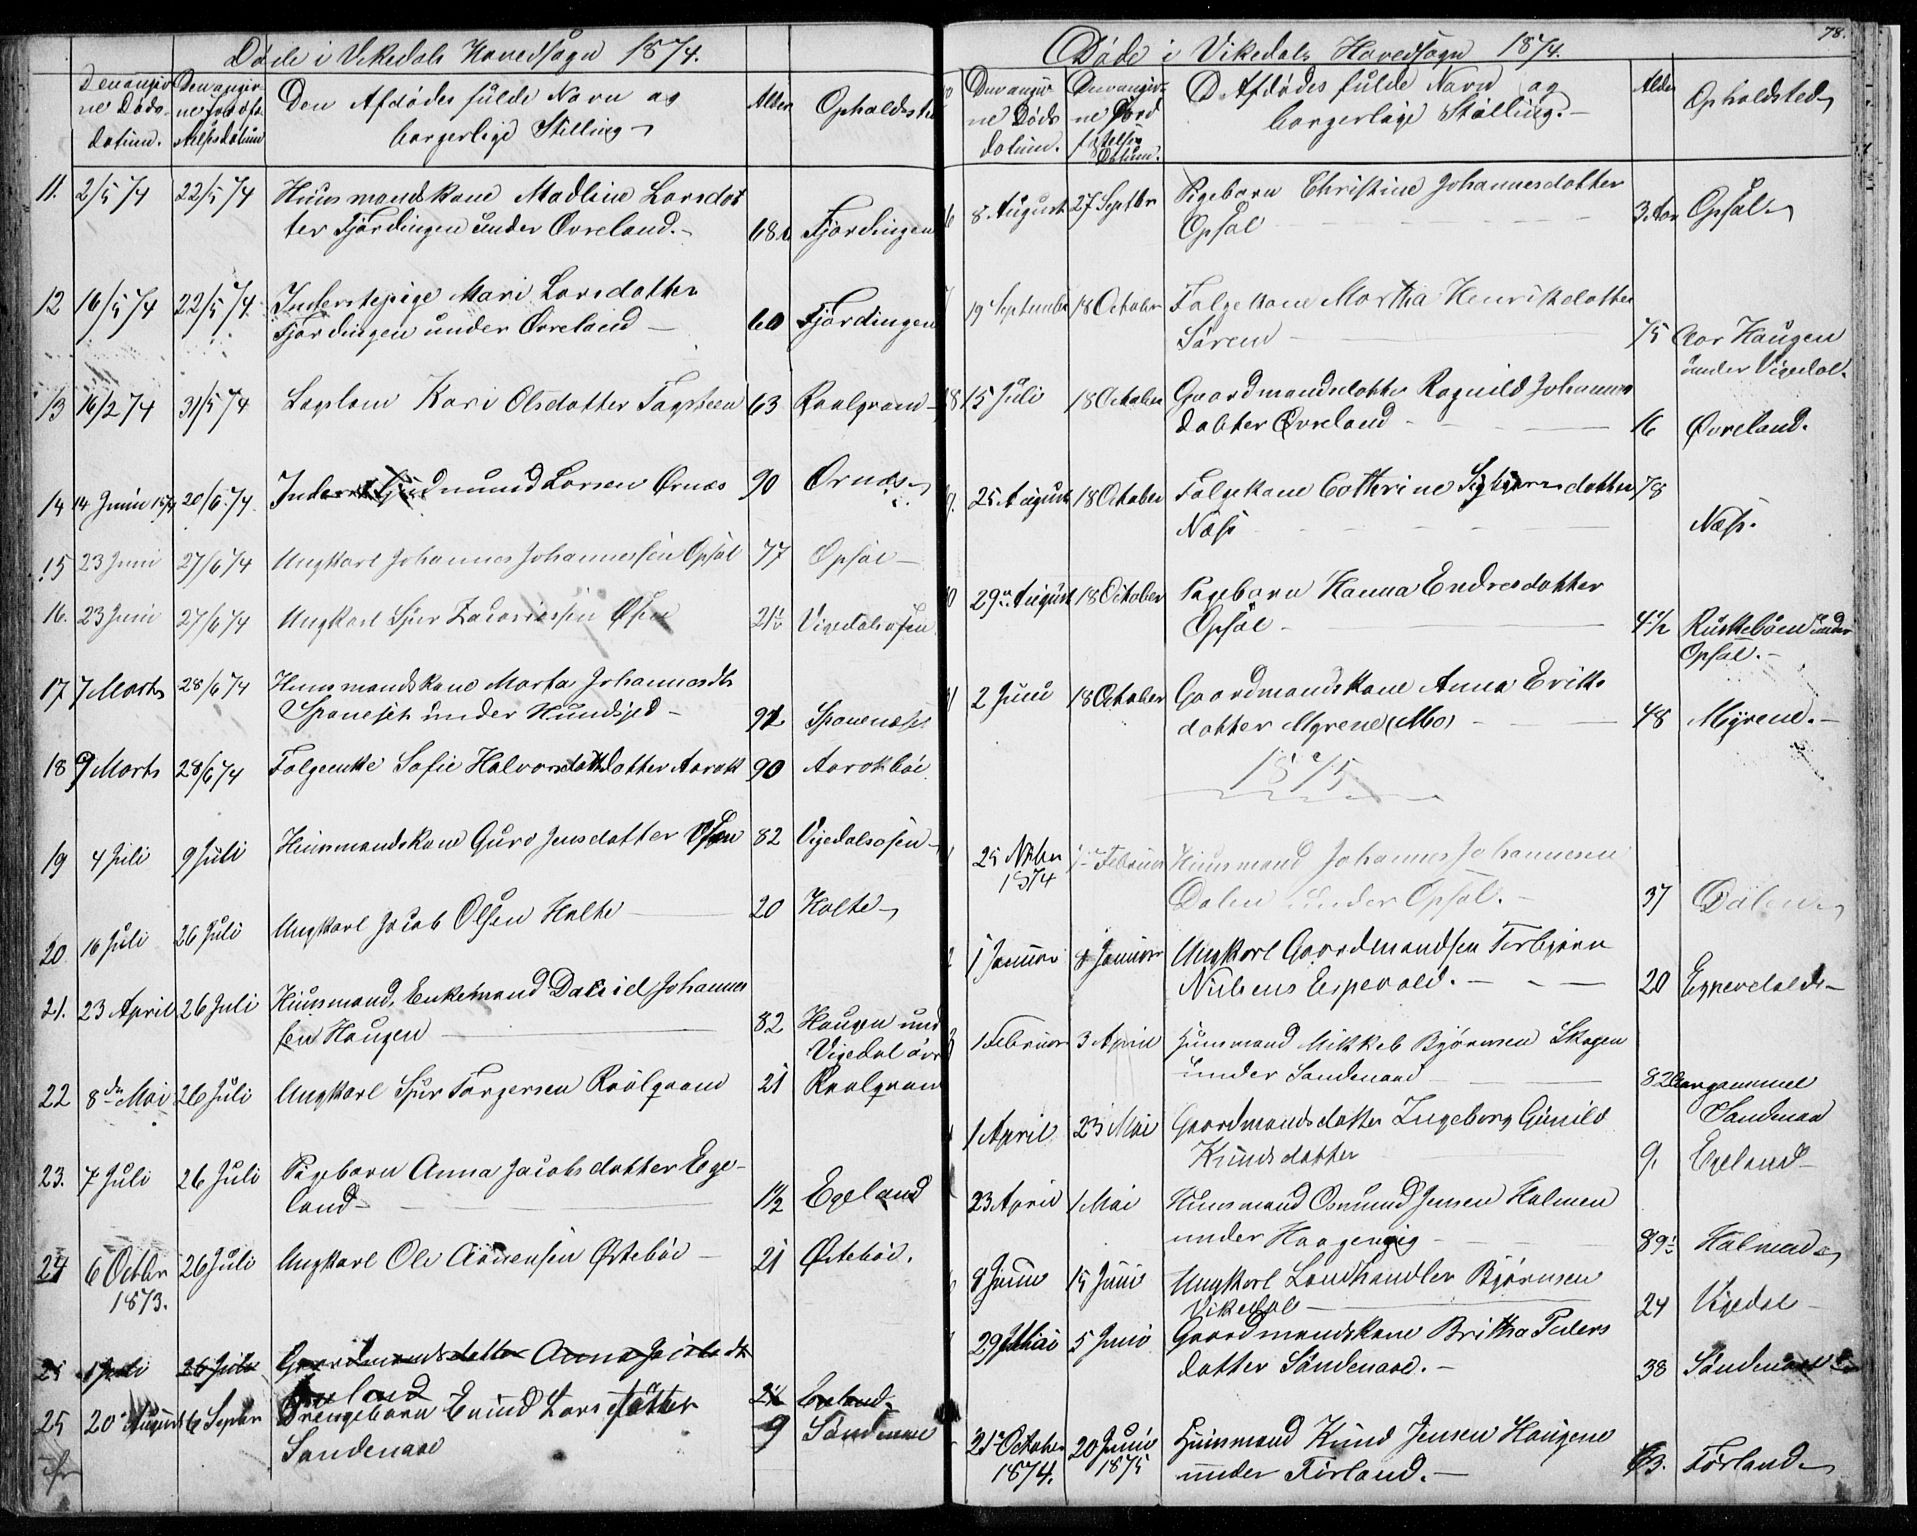 Døde i Vikedals Hovedsogn 1874.
Den angiv-
ne Døds-
datum.
Den angiv-
ne Jordfæ-
stelsesdatum
Den Afdødes fulde Navn og
borgerlige Stilling
Alder
Opholdsste
11. 2/5 74 22/5 74 Huusmandskone Madline Larsdot
ter Fjordingen under Øvreland.- 68 Fjordingen
12 16/5 74 22/5 74. Inderstepige Mari Larsdatter
Fjordingen under Øvreland - 60 Fjordingen
13 16/2 74 31/5 74 Lægslem Kari Olsdatter Fagsteen 63 Raalgrøn
14 14 Juni 1874 20/6 74. Inderst Gudmund Larsen Ørnæs 90 Ørnæs
15 23 Juni 27/6 74 Ungkarl Johannes Johannessen Opsal 77 Opsal -
16. 23 Juni 27/6 74 Ungkarl Sjur Zacariassen Øsen 21 Vigedalsosen
17 7 Marts 28/6 74 Huusmandskone Marta Johannesdtr
under Hundsjed - 92
18 9 Marts 28/6 74 Folgeenke Sofie Halvorsdatter Aarak 90 Aarokbøe
19 4 Juli 9 Juli Huusmandskone Guro Jensdatter Osen 82 Vigedalsosen
20 16 Juli 26 Juli Ungkarl Jacob Olsen Halte 20 Holte
21. 23 April 26 Juli Huusmand, Enkemand Daniel Johannes
sen Haugen 82 Haugen und
Vigedal øvr
22 8de Mai 26 Juli Ungkarl Sjur Torgersen Raalgrand 21 Raalgran
23. 7 Juli 26 Juli Pigebarn Anna Jacobsdatter Ege-
land 1½ Egeland
24 6 Octbr
1873. 26 Juli Ungkarl Ole Aanensen Østebøe - 21 Østebøe.
25 Juli 26 Juli Gaardmandsdatter Anna
Egeland 21 Egeland
25 20 August 6 Septbr Drengebarn Eivind Larsdatter
Søndenaae 9 Søndenaae
78.
Døde i Vikedals Hovedsogn 1874.
Den angiv-
ne Døds
datum.
Den angiv-
ne Jord
fæstelses
Datum.
D Afdødes fulde Navn og
borgerlige Stilling.-
Alder
Opholdsted
6 8 August 27 Septbr Pigebarn Christine Johannesdatter
Opsal 3. Aar Opsal
7 19 September 18 October Folgekone Martha Henriksdatter
Sørem 75 Aar Haugen
under Vigedal.
18 15 Juli 18 October Gaardmandsdatter Ragnild Johannes
datter Øvreland 16 Øvreland.
9. 25 August 18 October Folgekone Catherine Sigbjørnsdatter 78
Næss Næss.
0 29 August 18 October Pigebarn Hanna Endresdatter
Opsal 4½ Ruskebøen under
Opsal.-
1 2 Juni 18 October Gaardmandskone Anna Eriks
datter Myrene (Mo) 48 Myrene.-
1875
25 Novbr
1874 Februar Huusmand Johannes Johannesen
Dalen under Opsal. - 37 Dalen
1 Januar 8 Januar Ungkarl Gaardmandsøn Torbjørn
Nielsens Espevold. - 20 Espevold
3 1 Februar 3 April Huusmand Mikkel Bjørnsen Skogen
under Søndenaae 82 Aargammel
Søndenaa
1 April 23 Mai Gaardmandsdatter Ingeborg Gunild
Knudsdatter 9. Egeland
23 April 1 Mai Huusmand Osmund Jensen Holmen
under Haagenvig 89 Holmen
9 Juni 15 Juni Ungkarl Landhandler Bjørnsen
Vikedal 24 Vigedal -
29 Mai 5 Juni Gaardmandskone Britha Peders
datter Søndenaae.- 38 Søndenaae
21 October
1874. 20 Juni
1875 Huusmand Knud Jensen Haugene
under Førland.- 63. Førland